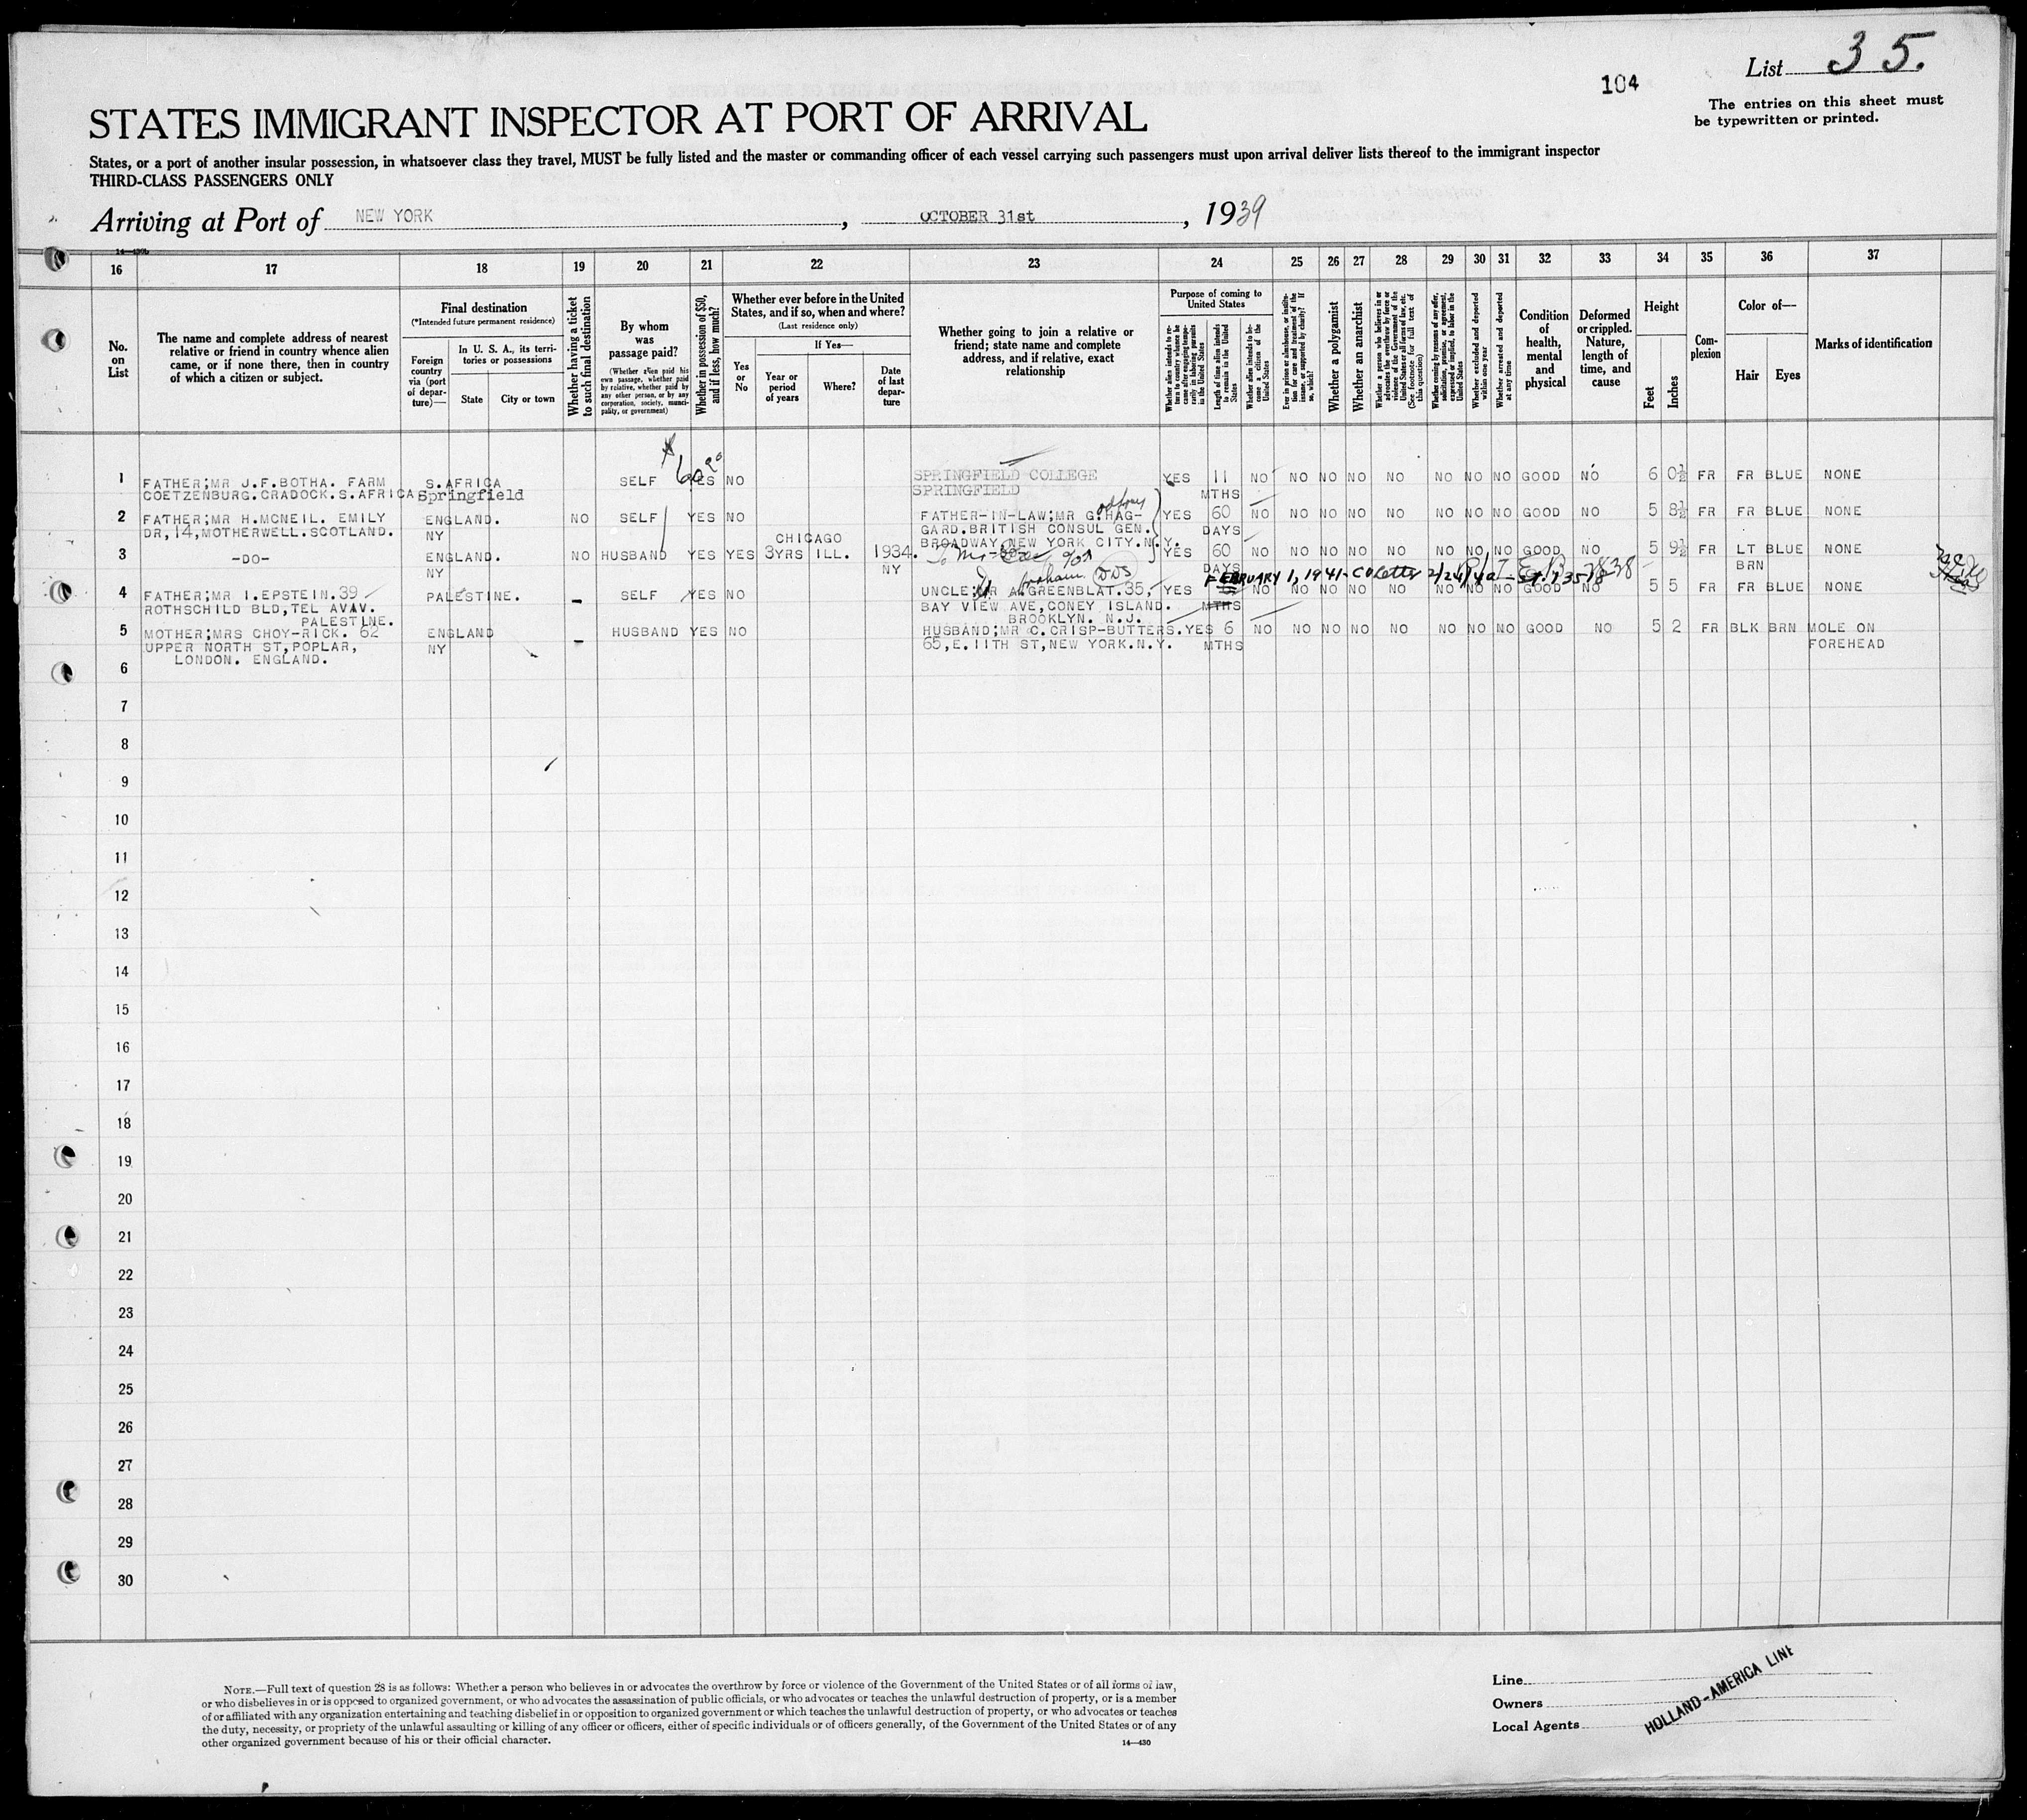 List 35.
104
The entries on this sheet must
be typewritten or printed.
STATES IMMIGRANT INSPECTOR AT PORT OF ARRIVAL
States, or a port of another insular possession, in whatsoever class they travel, MUST be fully listed and the master or commanding officer of each vessel carrying such passengers must upon arrival deliver lists thereof to the immigrant inspector
THIRD-CLASS PASSENGERS ONLY
Arriving at Port of NEW YORK, OCTOBER 31st, 1939
16 17 18 19 20 21 22 23 24 25 26 27 28 29 30 31 32 33 34 35 36 37
No.
on
List
The name and complete address of nearest
relative or friend in country whence alien
came, or if none there, then in country
of which a citizen or subject.
Final destination
(*Intended future permanent residence)
Foreign
country
via (port
of depar-
ture)—
In U. S. A., its terri-
tories or possessions
State
City or town
Whether having a ticket
to such final destination
By whom
was
passage paid?
(Whether alien paid his
own passage, whether paid
by relative, whether paid by
any other person, or by any
corporation, society, munici-
pality, or government)
Whether in possession of $50,
and if less, how much?
Whether ever before in the United
States, and if so, when and where?
(Last residence only)
Yes
or
No
If Yes—
Year or
period
of years
Where?
Date
of last
depar-
ture
Whether going to join a relative or
friend; state name and complete
address, and if relative, exact
relationship
Purpose of coming to
United States
Whether alien intends to re-
turn to country whence he
came after engaging tempo-
rarily in laboring pursuits
in the United States
Length of time alien intends
to remain in the United
States
Whether alien intends to be-
come a citizen of the
United States
Ever in prison or almshouse, or institu-
tion for care and treatment of the
insane, or supported by charity? If
so, which?
Whether a polygamist
Whether an anarchist
Whether a person who believes in or
advocates the overthrow by force or
violence of the Government of the
United States or all forms of law, etc.
(See footnote for full text of
this question)
Whether coming by reasons of any offer,
solicitation, promise, or agreement,
expressed or implied, to labor in the
United States
Whether excluded and deported
within one year
Whether arrested and deported
at any time
Condition
of
health,
mental
and
physical
Deformed
or crippled.
Nature,
length of
time, and
cause
Height
Feet
Inches
Com-
plexion
Color of—
Hair
Eyes
Marks of identification
1 FATHER;MR J.F.BOTHA. FARM S.AFRICA SELF YES NO SPRINGFIELD COLLEGE YES 11 NO NO NO NO NO NO NO NO GOOD NO 6 0½ FR FR BLUE NONE
COETZENBURG.CRADOCK.S.AFRICA Springfield SPRINGFIELD MTHS
2 FATHER;MR H.MCNEIL. EMILY ENGLAND. NO SELF YES NO FATHER-IN-LAW;MR G.HAG- YES 60 NO NO NO NO NO NO NO NO GOOD NO 5 8½ FR FR BLUE NONE
DR,14,MOTHERWELL.SCOTLAND. NY GARD.BRITISH CONSUL GEN. DAYS
CHICAGO BROADWAY NEW YORK CITY.N.Y.
3 -DO- ENGLAND. NO HUSBAND YES YES 3YRS ILL. 1934. YES 60 NO NO NO NO NO NO NO NO GOOD NO 5 9½ FR LT BLUE NONE
NY NY DAYS BRN
FEBRUARY 1, 1941
4 FATHER;MR I.EPSTEIN.39 PALESTINE. - SELF YES NO UNCLE;MR A.GREENBLAT.35, YES NO NO NO NO NO NO NO NO GOOD NO 5 5 FR FR BLUE NONE
ROTHSCHILD BLD,TEL AVAV. BAY VIEW AVE,CONEY ISLAND. MTHS
PALESTINE. BROOKLYN. N.J.
5 MOTHER;MRS CHOY-RICK. 62 ENGLAND - HUSBAND YES NO HUSBAND;MR C.CRISP-BUTTERS. YES 6 NO NO NO NO NO NO NO NO GOOD NO 5 2 FR BLK BRN MOLE ON
UPPER NORTH ST,POPLAR, NY 65,E.11TH ST,NEW YORK.N.Y. MTHS FOREHEAD
LONDON. ENGLAND.
6
7
8
9
10
11
12
13
14
15
16
17
18
19
20
21
22
23
24
25
26
27
28
29
30
NOTE.—Full text of question 28 is as follows: Whether a person who believes in or advocates the overthrow by force or violence of the Government of the United States or of all forms of law,
or who disbelieves in or is opposed to organized government, or who advocates the assassination of public officials, or who advocates or teaches the unlawful destruction of property, or is a member
of or affiliated with any organization entertaining and teaching disbelief in or opposition to organized government or which teaches the unlawful destruction of property, or who advocates or teaches
the duty, necessity, or propriety of the unlawful assaulting or killing of any officer or officers, either of specific individuals or of officers generally, of the Government of the United States or of any
other organized government because of his or their official character.
14—430
Line
Owners
Local Agents
HOLLAND-AMERICA LINE